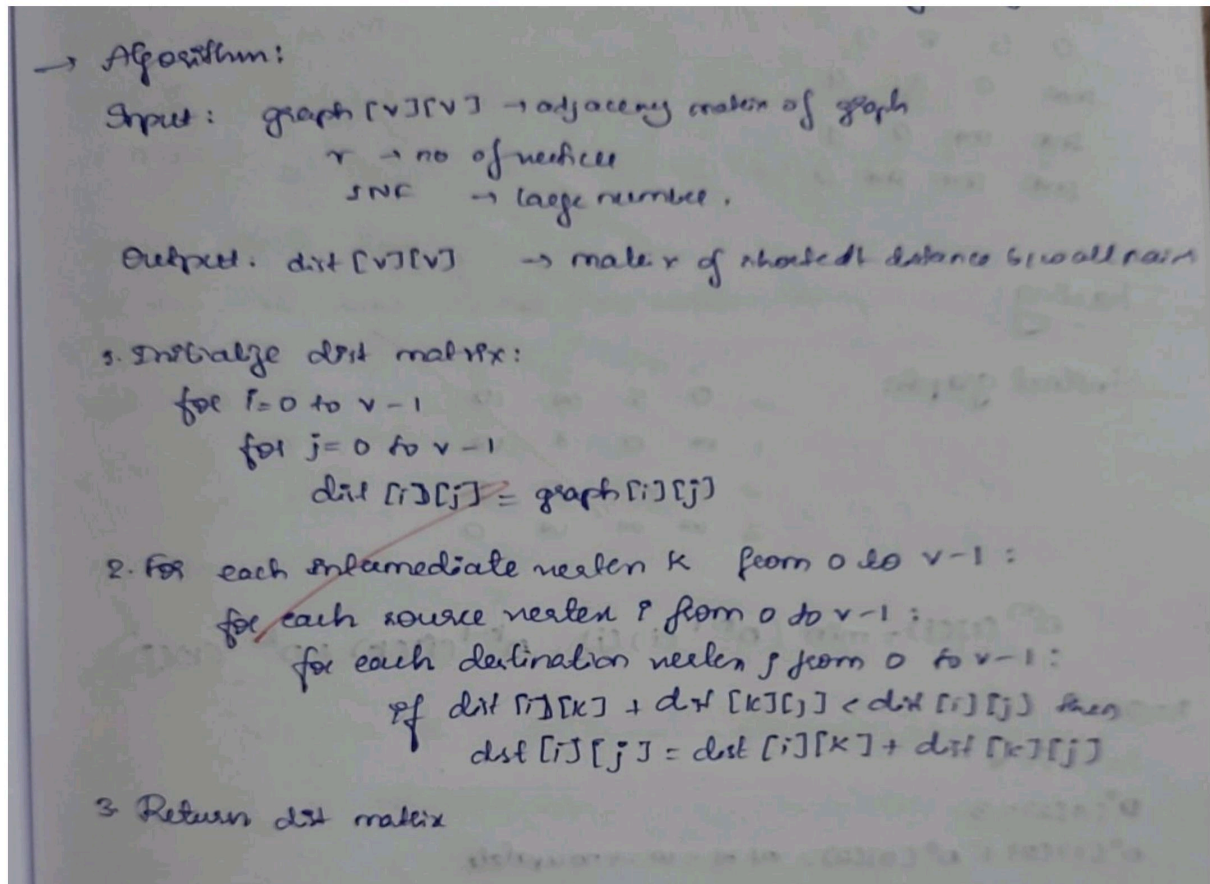 → Algorithm:
Input: graph [v][v] → adjaceny matrix of graph
v → no of vertices
INF → large number.
Output: dist [v][v] → matrix of shortest distance b/w all pairs
1. Initialze dist matrix:
for i=0 to v-1
for j=0 to v-1
dist [i][j] = graph[i][j]
2. For each intermediate vertex k from 0 to v-1:
for each source vertex i from 0 to v-1:
for each destination vertex j from 0 to v-1:
if dist [i][k] + dist [k][j] < dist [i][j] then
dist [i][j] = dist [i][k] + dist [k][j]
3 Return dist matrix